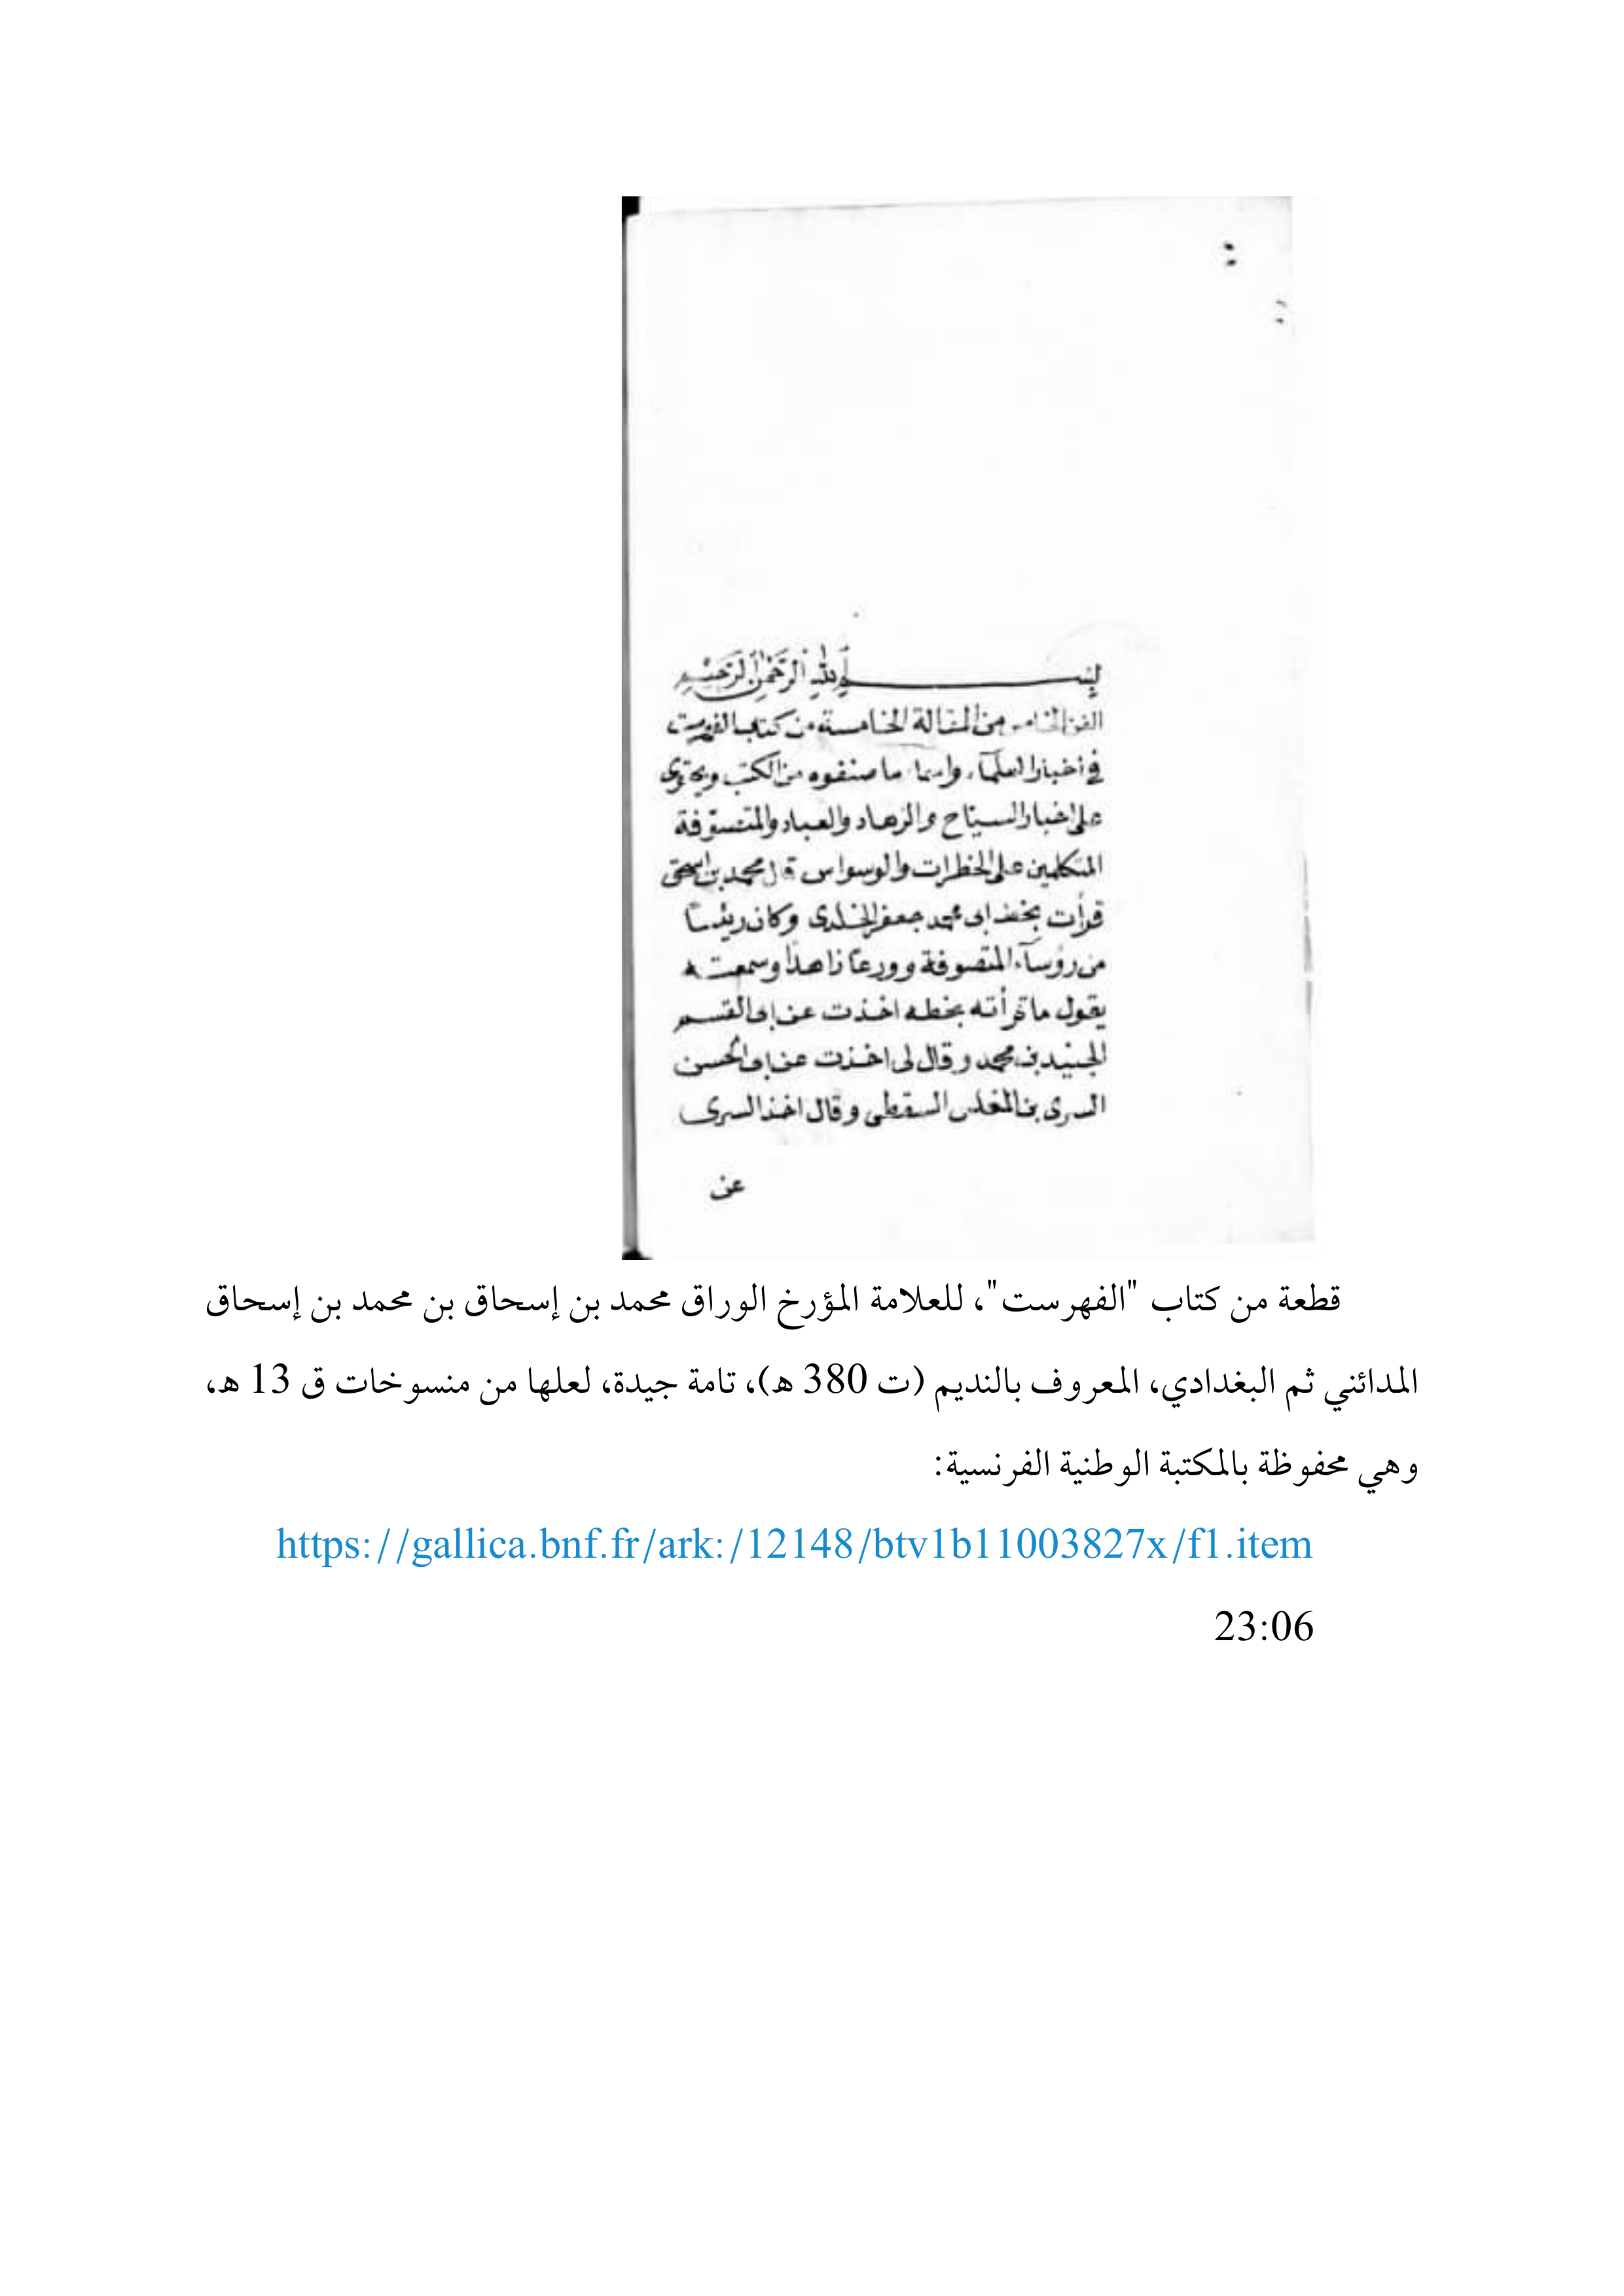 بسم الله الرحمن الرحيم
الفن الخامس من المقالة الخامسة من كتاب الفهرست
في اخبار العلماء واسماء ما صنفوه من الكتب ويحتوى
على اخبار السياح والزهاد والعباد والمتصوفة
المتكلمين على الخطرات والوسواس قال محمد بن اسحق
قرأت بخط ابى محمد جعفر الخلدى وكان رئيسا
من رؤساء المتصوفة وورعا زاهدا وسمعته
يقول ما قرأته بخطه اخذت عن ابى القسم
الجنيد بن محمد وقال لى اخذت عن ابى الحسن
السرى بن المغلس السقطى وقال اخذ السرى
عن
قطعة من كتاب "الفهرست"، للعلامة المؤرخ الوراق محمد بن إسحاق بن محمد بن إسحاق
المدائني ثم البغدادي، المعروف بالنديم (ت 380 هـ)، تامة جيدة، لعلها من منسوخات ق 13 هـ،
وهي محفوظة بالمكتبة الوطنية الفرنسية:
https://gallica.bnf.fr/ark:/12148/btv1b11003827x/f1.item
23:06